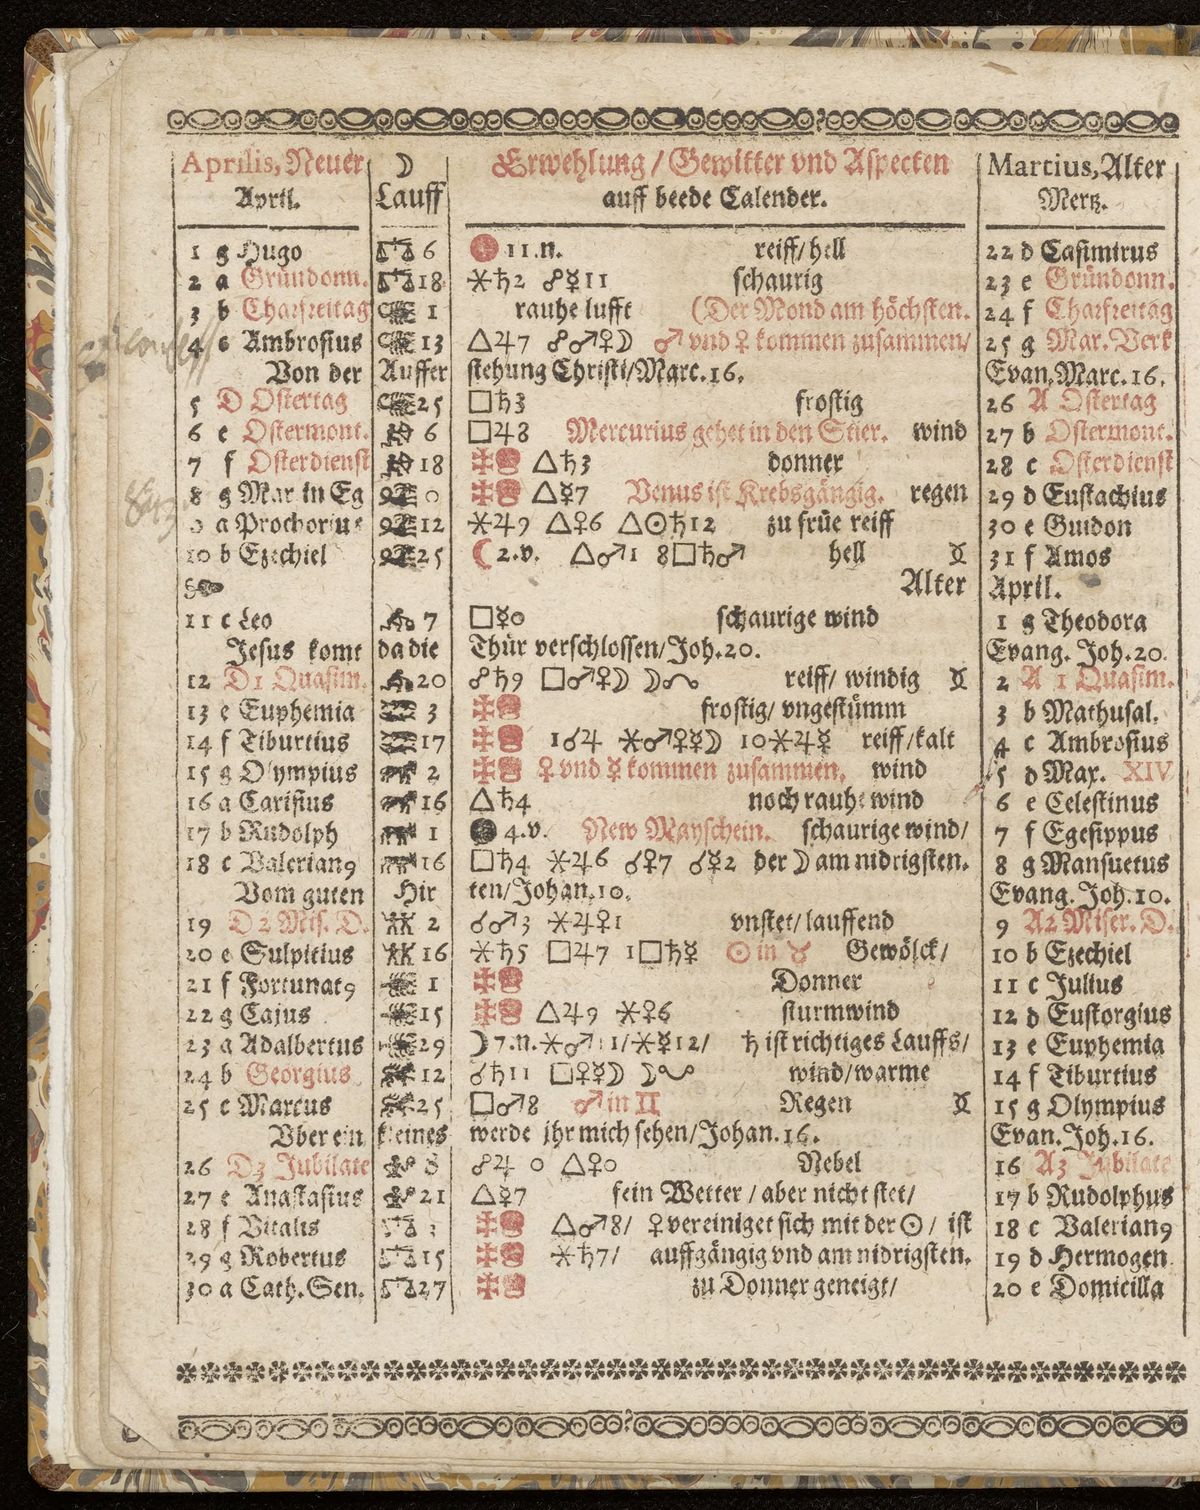 Aprilis, Neuer ☽ Erwehlung / Gewitter vnd Aspecten Martius, Alter
April. Lauff auff beede Calender. Mertz.
1 g Hugo ♎ 6 11.n. reiff/ hell 22 d Casimirus
2 a Gründonn. ♎ 18 ⚹♄2 ☍☿11 schaurig 23 e Gründonn.
3 b Charfreitag 1 rauhe lufft (Der Mond am höchsten. 24 f Charfreitag
4 c Ambrosius 13 △♃7 ☍♂♀☽ ♂ vnd ♀ kommen zusammen/ 25 g Mar. Verk
Von der Auffer stehung Christi/Marc.16. Evan. Marc.16.
5 D Ostertag 25 □♄3 frostig 26 A Ostertag
6 e Ostermont. 6 □♃8 Mercurius gehet in den Stier. wind 27 b Ostermont.
7 f Osterdienst 18 △♄3 donner 28 c Osterdienst
8 g Mar in Eg 0 △☿7 Venus ist Krebsgängig. regen 29 d Eustachius
a Prochorius 12 ⚹♃9 △♀6 △☉♄12 zu früe reiff 30 e Guidon
10 b Ezechiel 25 ☾ 2.v. △♂1 8□♄♂ hell 31 f Amos
Alter April.
11 c Leo 7 □☿0 schaurige wind 1 g Theodora
Jesus komt da die Thür verschlossen/Joh.20. Evang. Joh.20.
12 D1 Quasim. 20 ☍♄9 □♂♀☽ ☽☊ reiff/ windig 2 A 1 Quasim.
13 e Euphemia 3 frostig/ vngestümm 3 b Mathusal.
14 f Tiburtius 17 1☌♃ ⚹♂♀☿☽ 10⚹♃☿ reiff/kalt 4 c Ambrosius
15 g Olympius 2 ♀ vnd ☿ kommen zusammen. wind 5 d Max. XIV
16 a Carisius 16 △♄4 noch rauhe wind 6 e Celestinus
17 b Rudolph 1 4.v. New Mayschein. schaurige wind/ 7 f Egesippus
18 c Valerianꝰ 16 □♄4 ⚹♃6 ☌♀7 ☌☿2 der ☽ am nidrigsten. 8 g Mansuetus
Vom guten Hir ten/Johan.10. Evang. Joh.10.
19 D2 Mis. D. 2 ☌♂3 ⚹♃♀1 vnstet/ lauffend 9 A2 Miser. D.
20 e Sulpitius 16 ⚹♄5 □♃7 1□♄☿ ☉ in ♉ Gewölck/ 10 b Ezechiel
21 f Fortunatꝰ 1 Donner 11 c Julius
22 g Cajus 15 △♃9 ⚹♀6 sturmwind 12 d Eustorgius
23 a Adalbertus 29 ☽7.n. ⚹♂11/⚹☿12/ ♄ ist richtiges Lauffs/ 13 e Euphemia
24 b Georgius 12 ☌♄11 □♀☿☽ ☽☋ wind/warme 14 f Tiburtius
25 c Marcus 25 □♂8 ♂ in ♊ Regen 15 g Olympius
Vber ein kleines werde jhr mich sehen/Johan.16. Evan. Joh.16.
26 D3 Jubilate 8 ☍♃ 0 △♀0 Nebel 16 A3 Jubilate
27 e Anastasius 21 △☿7 fein Wetter / aber nicht stet/ 17 b Rudolphus
28 f Vitalis 3 △♂8/ ♀ vereiniget sich mit der ☉ / ist 18 c Valerianꝰ
29 g Robertus ♎ 15 ⚹♄7/ auffgängig vnd am nidrigsten. 19 d Hermogen
30 a Cath. Sen. ♎ 27 zu Donner geneigt/ 20 e Domicilla